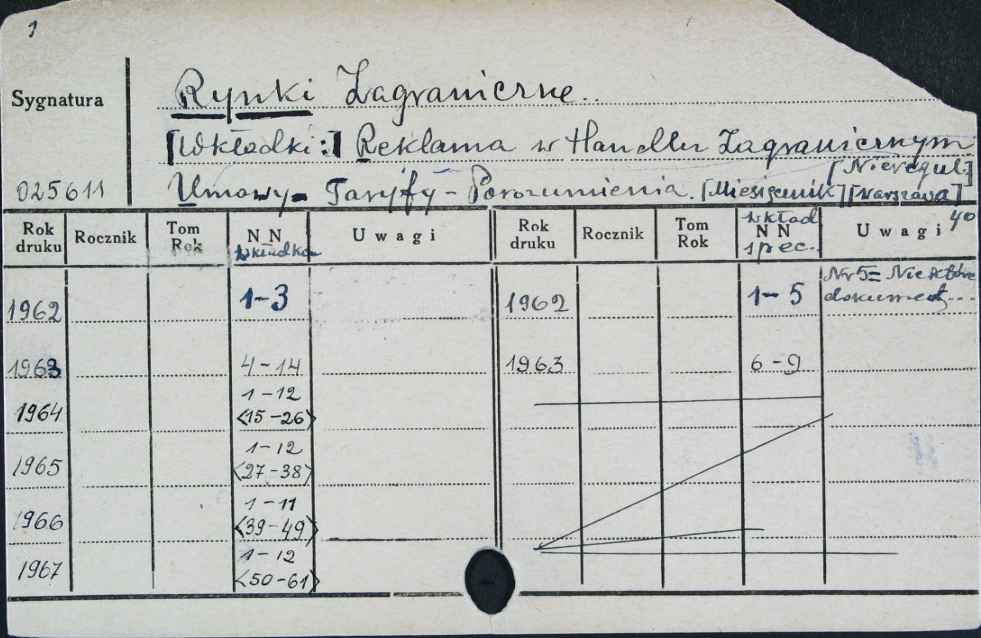 1
Sygnatura
Rynki Zagraniczne.
[Wkładki:] Reklama w Handlu Zagranicznym
[Nieregul.]
025611
Umowy - Taryfy - Porozumienia. [Miesięcznik] [Warszawa]
40
Rok druku Rocznik Tom Rok NN wkładka Uwagi Rok druku Rocznik Tom Rok wkład NN spec. Uwagi
1962 1-3 1962 1-5 Nr 5= Niektóre
dokument...
1963 4-14 1963 6-9
1-12
1964 <15-26>
1-12
1965 <27-38>
1-11
1966 <39-49>
1-12
1967 <50-61>